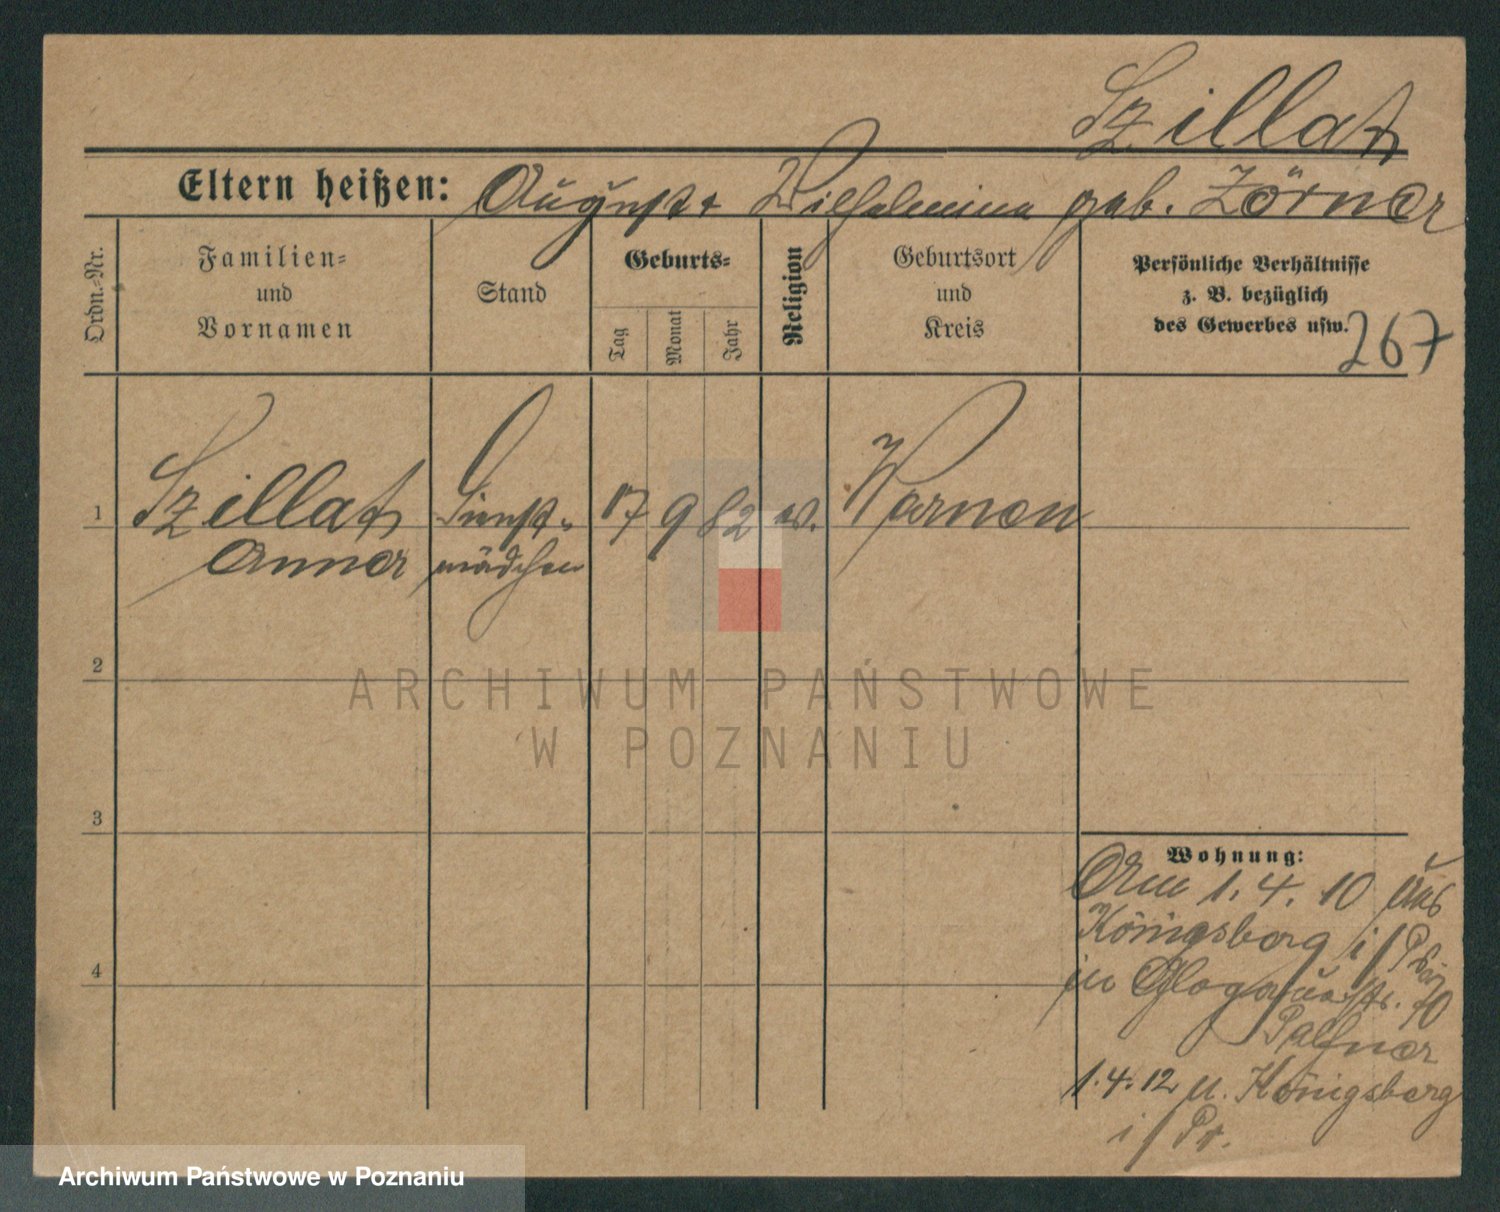 Szillat
Eltern heißen: August + Wilhelmina geb. Zörner
Ordn.-Nr.
Familien-
und
Vornamen
Stand
Geburts-
Tag
Monat
Jahr
Religion
Geburtsort
und
Kreis
Persönliche Verhältnisse
z. B. bezüglich
des Gewerbes usw.
267
1 Szillat Dienst- 17 9 82 ev. Warnen
Anna mädchen
2
3
4
Wohnung:
Am 1.4.10 aus
Königsberg i/Pr
in Glogauerstr.
1.4.12 n. Königsberg
i/Pr.
ARCHIWUM PAŃSTWOWE
W POZNANIU
Archiwum Państwowe w Poznaniu